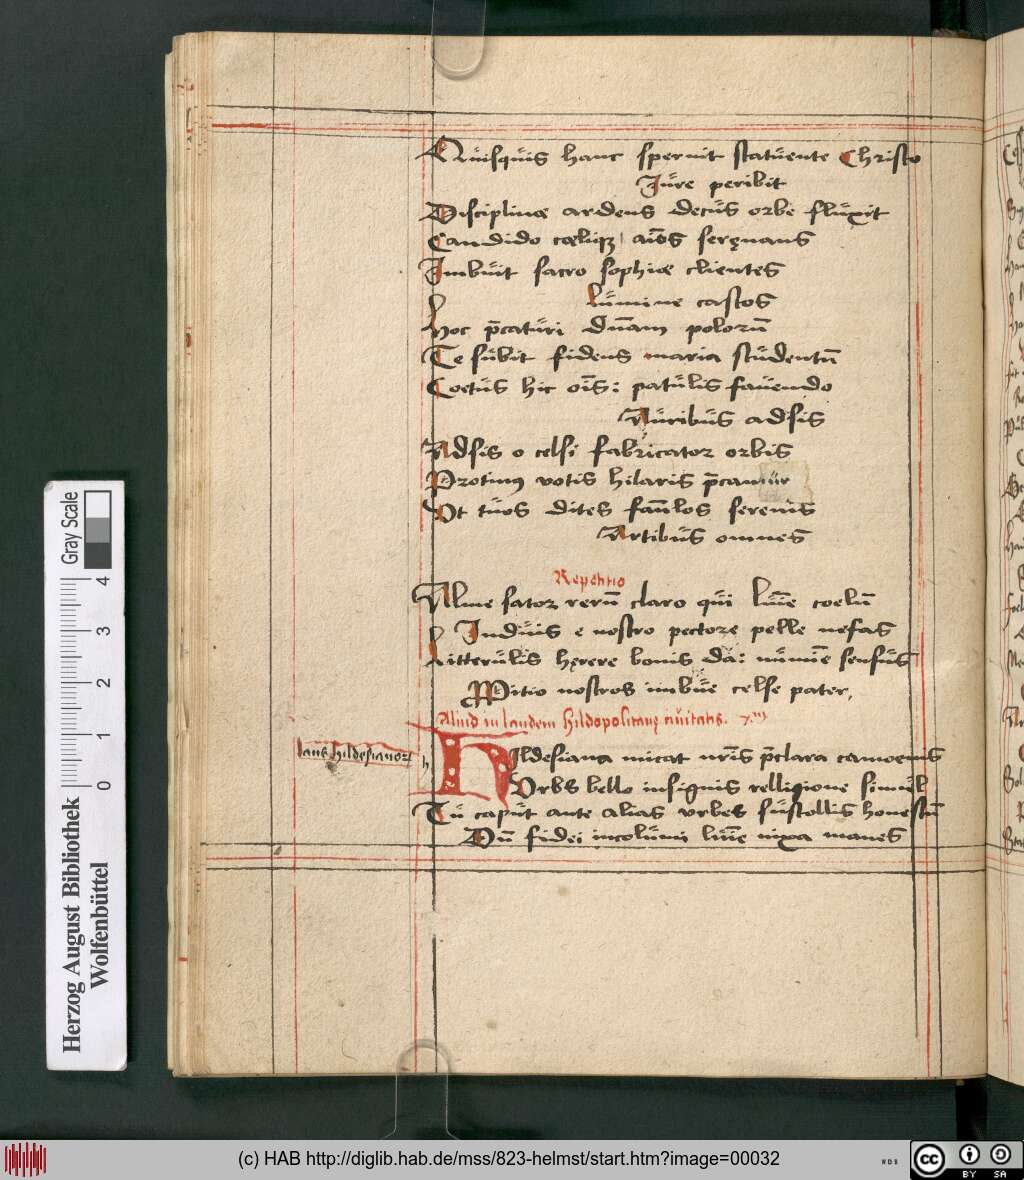 Quisquis hanc spernit statuente Christo
Jure peribit
Discipline ardens decus orbe fluxit
Candido
Imbuit sacro sophie clientes
Lumine castos
Hoc p̄caturi dūam polorū
Te subit fidens maria studentū
Coetus hic oīs: patulis fauendo
Auribus adsis
Adsis o celsi fabricator orbis
Protinꝰ votis hilaris p̄camur
Vt tuos dites famlos serenis
Artibus omnes
Repetitio
Alme sator rerū claro qui lumīe coelū
Induis e nostro pectore pelle nefas
Litterulis hęrere bonis da: numīe sensus
Mitio nostros imbue celse pater,
Aliud in laudem hildopolitanę ciuitatis.
laus hildesianoꝝ
h
Hildesiana micat nrīs p̄clara camoenis
Vrbs bello insignis relligione simul
Tu caput ante alias vrbes sustollis honestū
Dū fidei incolumi lumīe nixa manes
Gray Scale
4
3
2
1
0
Herzog August Bibliothek
Wolfenbüttel
(c) HAB http://diglib.hab.de/mss/823-helmst/start.htm?image=00032
cc BY SA